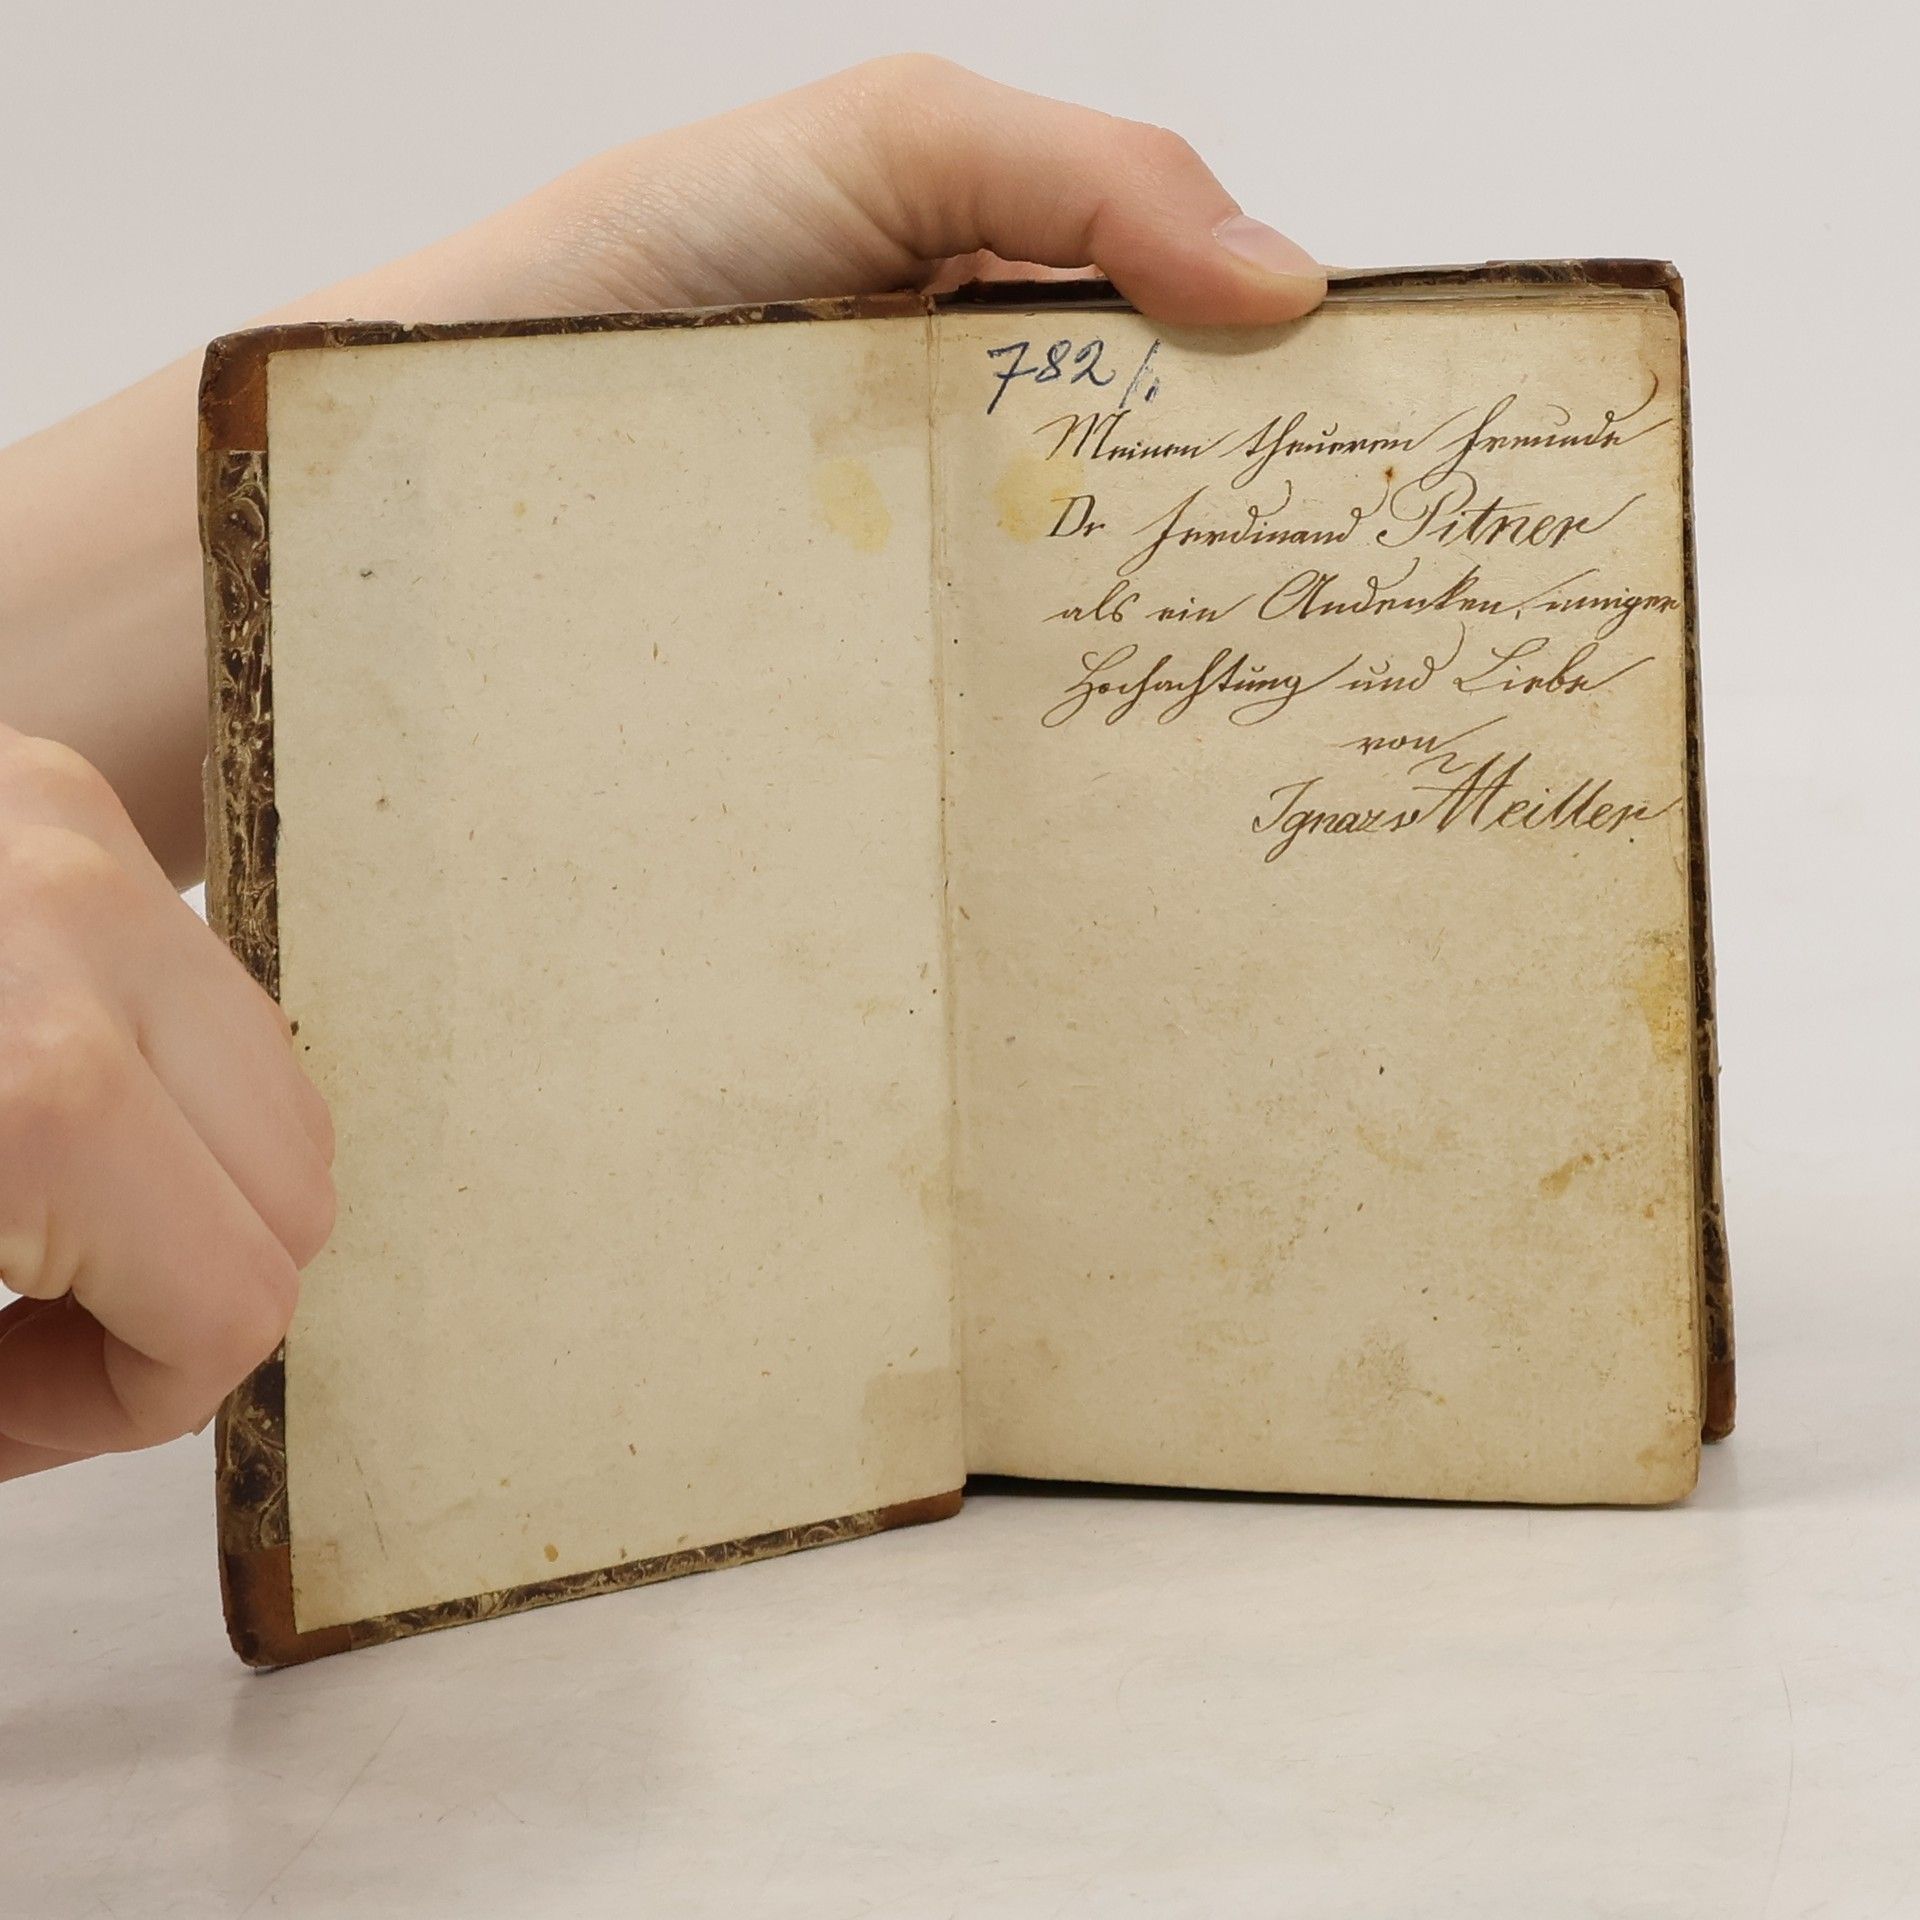 782/1.
Meinen theueren Freunde
Dr Ferdinand Pitner
als ein Andenken inniger
Hochachtung und Liebe
von
Ignaz v Meiller